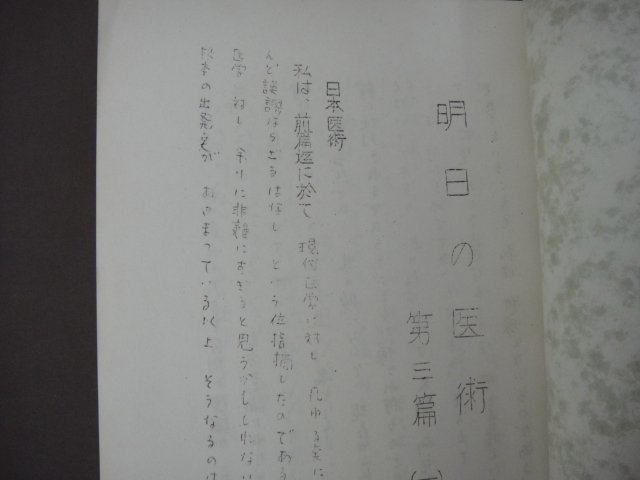 明日の医術
第三篇 (一
日本医術
私は、前篇迄に於て 現代医学に対し 凡ゆる点に
んど誤謬ならざるはなし という位指摘したのであ
医学に対し 余りに非難にすぎると思うかもしれない
の出発点が あやまっている以上 そうなるのは